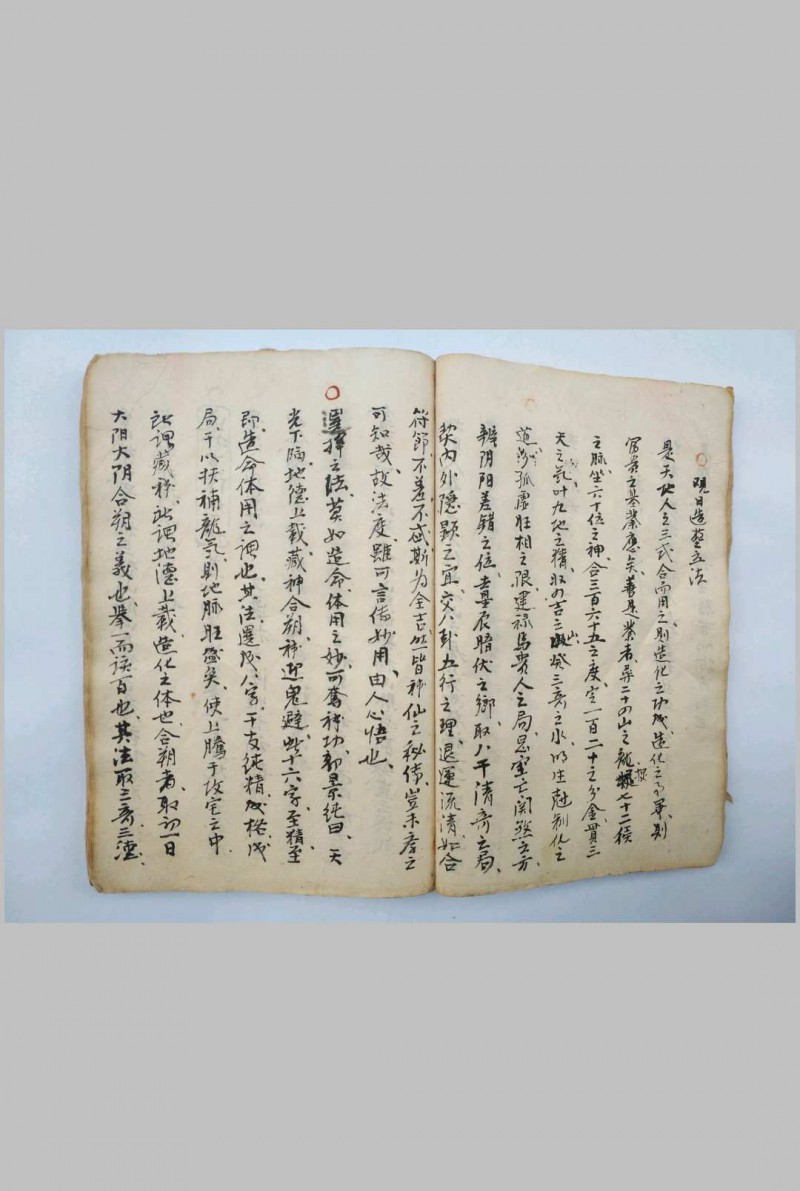 造葬立法
是天地人之三式合而用之則造化之功成造化之
富贵之基業應矣善是業者尋二十四山之龍七十二候
之脉坐六十位之神合三百六十五之度定一百二十之分金貫三
天之氣叶九地之精取四吉三之山癸三奇之水明生尅制化之
道涉孤虚旺相之限建禄馬貴人之局忌空亡関煞之方
辨阴阳差錯之位去墓辰暗伏之鄉取八干清奇之局
契內外隱顕之宜交八卦五行之理退運流清如合
符節不差不忒斯为全吉此皆神仙之秘傳豈未學之
可知哉故法度雖可言傳妙用由人心悟也
選择之法莫如造命体用之妙可奪神功郭景纯曰天
光下临地德上載藏神合朔神迎鬼避此十六字至精至
即造命体用之謂也其法選成八字干支纯精成格成
局干以扶補龍氣則地脉旺盛矣使上騰于坟宅之中
所謂藏神所謂地德上載造化之体也合朔者取初一日
太阳太阴合朔之義也舉一而该百也其法取三奇三德